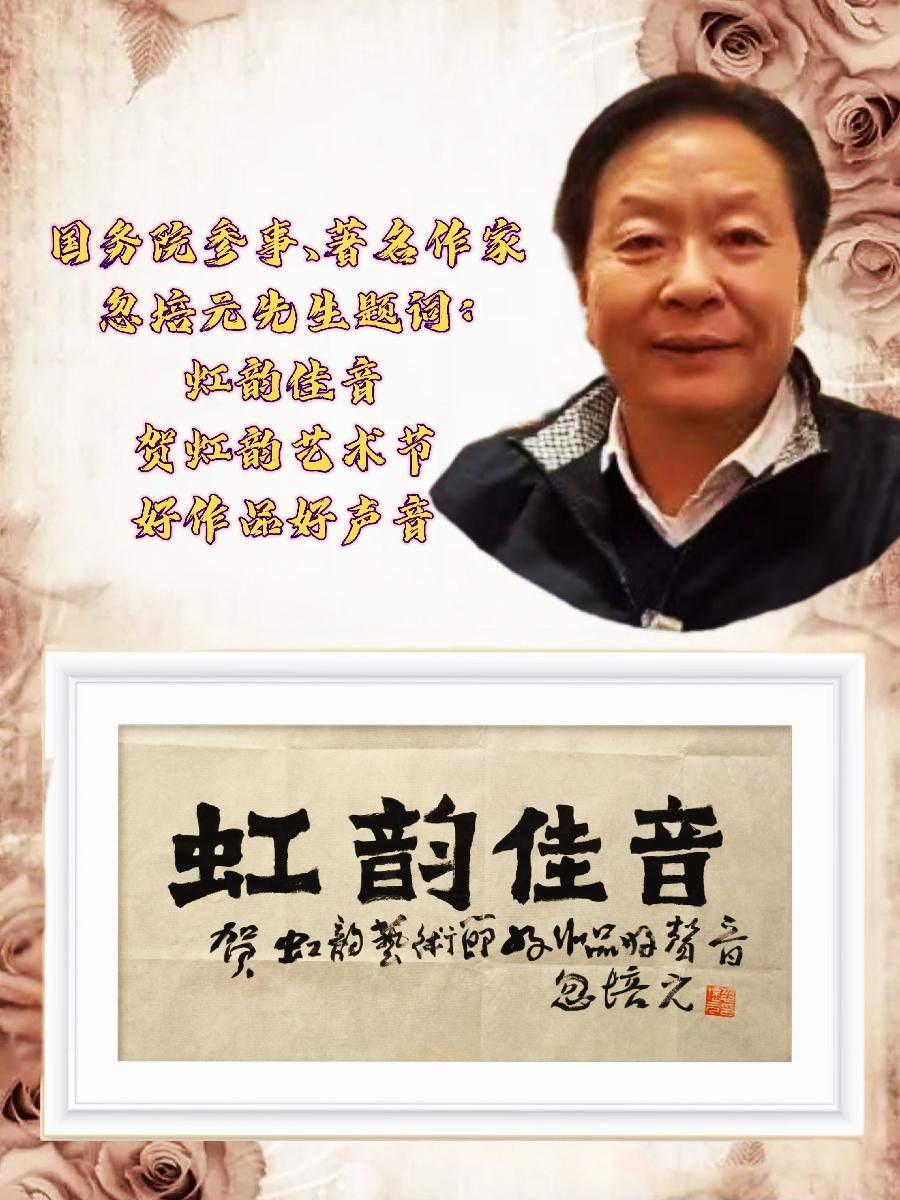 国务院参事、著名作家
忽培元先生题词：
虹韵佳音
贺虹韵艺术节
好作品好声音
虹韵佳音
贺虹韵藝術節好作品好聲音
忽培元